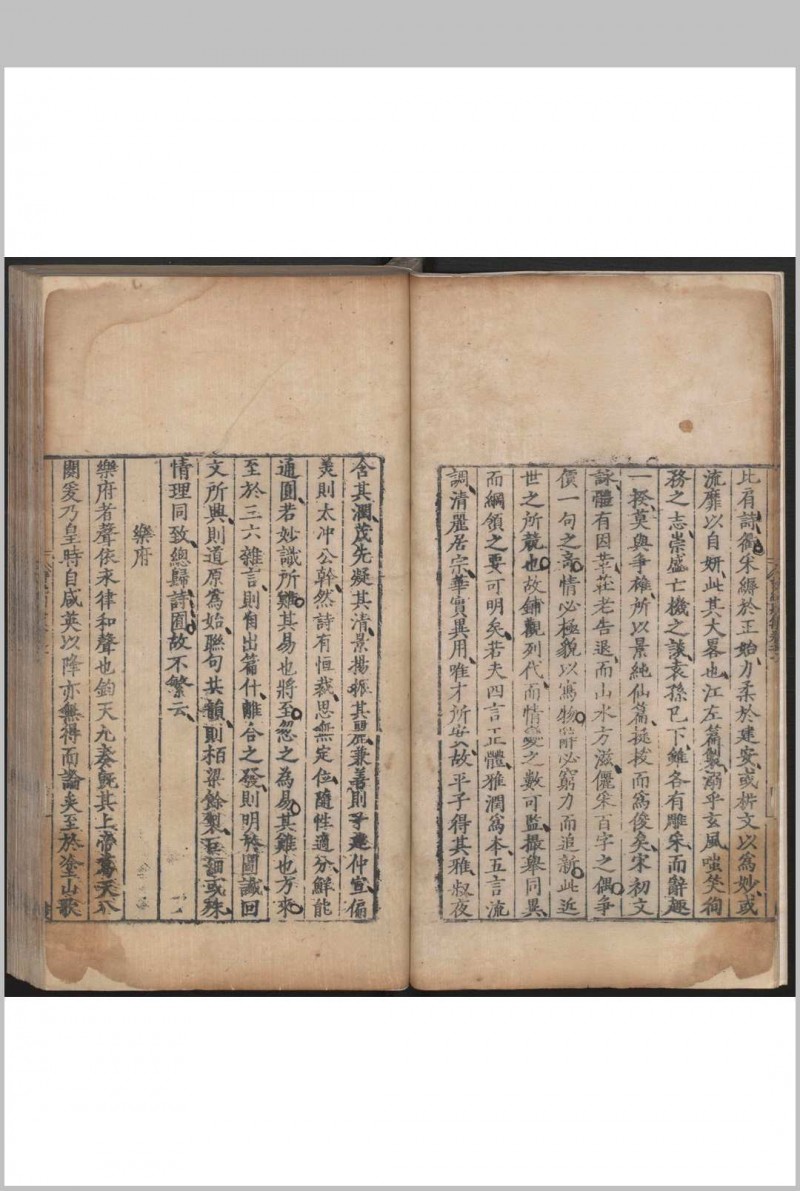 比肩詩衢采縟於正始力柔於建安或析文以為妙或
流靡以自妍此其大畧也江左篇製溺乎玄風嗤笑徇
務之志崇盛亡機之談袁孫已下雖各有雕采而辭趣
一揆莫與爭雄所以景純仙篇挺拔而為俊矣宋初文
詠體有因革莊老告退而山水方滋儷采百字之偶爭
價一句之奇情必極貌以寫物辭必窮力而追新此近
世之所競也故鋪觀列代而情變之數可監撮舉同異
而綱領之要可明矣若夫四言正體雅潤為本五言流
調清麗居宗華實異用唯才所安故平子得其雅叔夜
含其潤茂先凝其清景揚振其麗兼善則子建仲宣偏
美則太冲公幹然詩有恒裁思無定位隨性適分鮮能
通圓若妙識所難其易也將至忽之為易其難也方來
至於三六雜言則自出篇什離合之發則明於圖讖回
文所興則道原為始聯句共韻則柏梁餘製巨細或殊
情理同致總歸詩囿故不繁云
樂府
樂府者聲依永律和聲也鈞天九奏既其上帝葛天八
闋爰乃皇時自咸英以降亦無得而論矣至於塗山歌